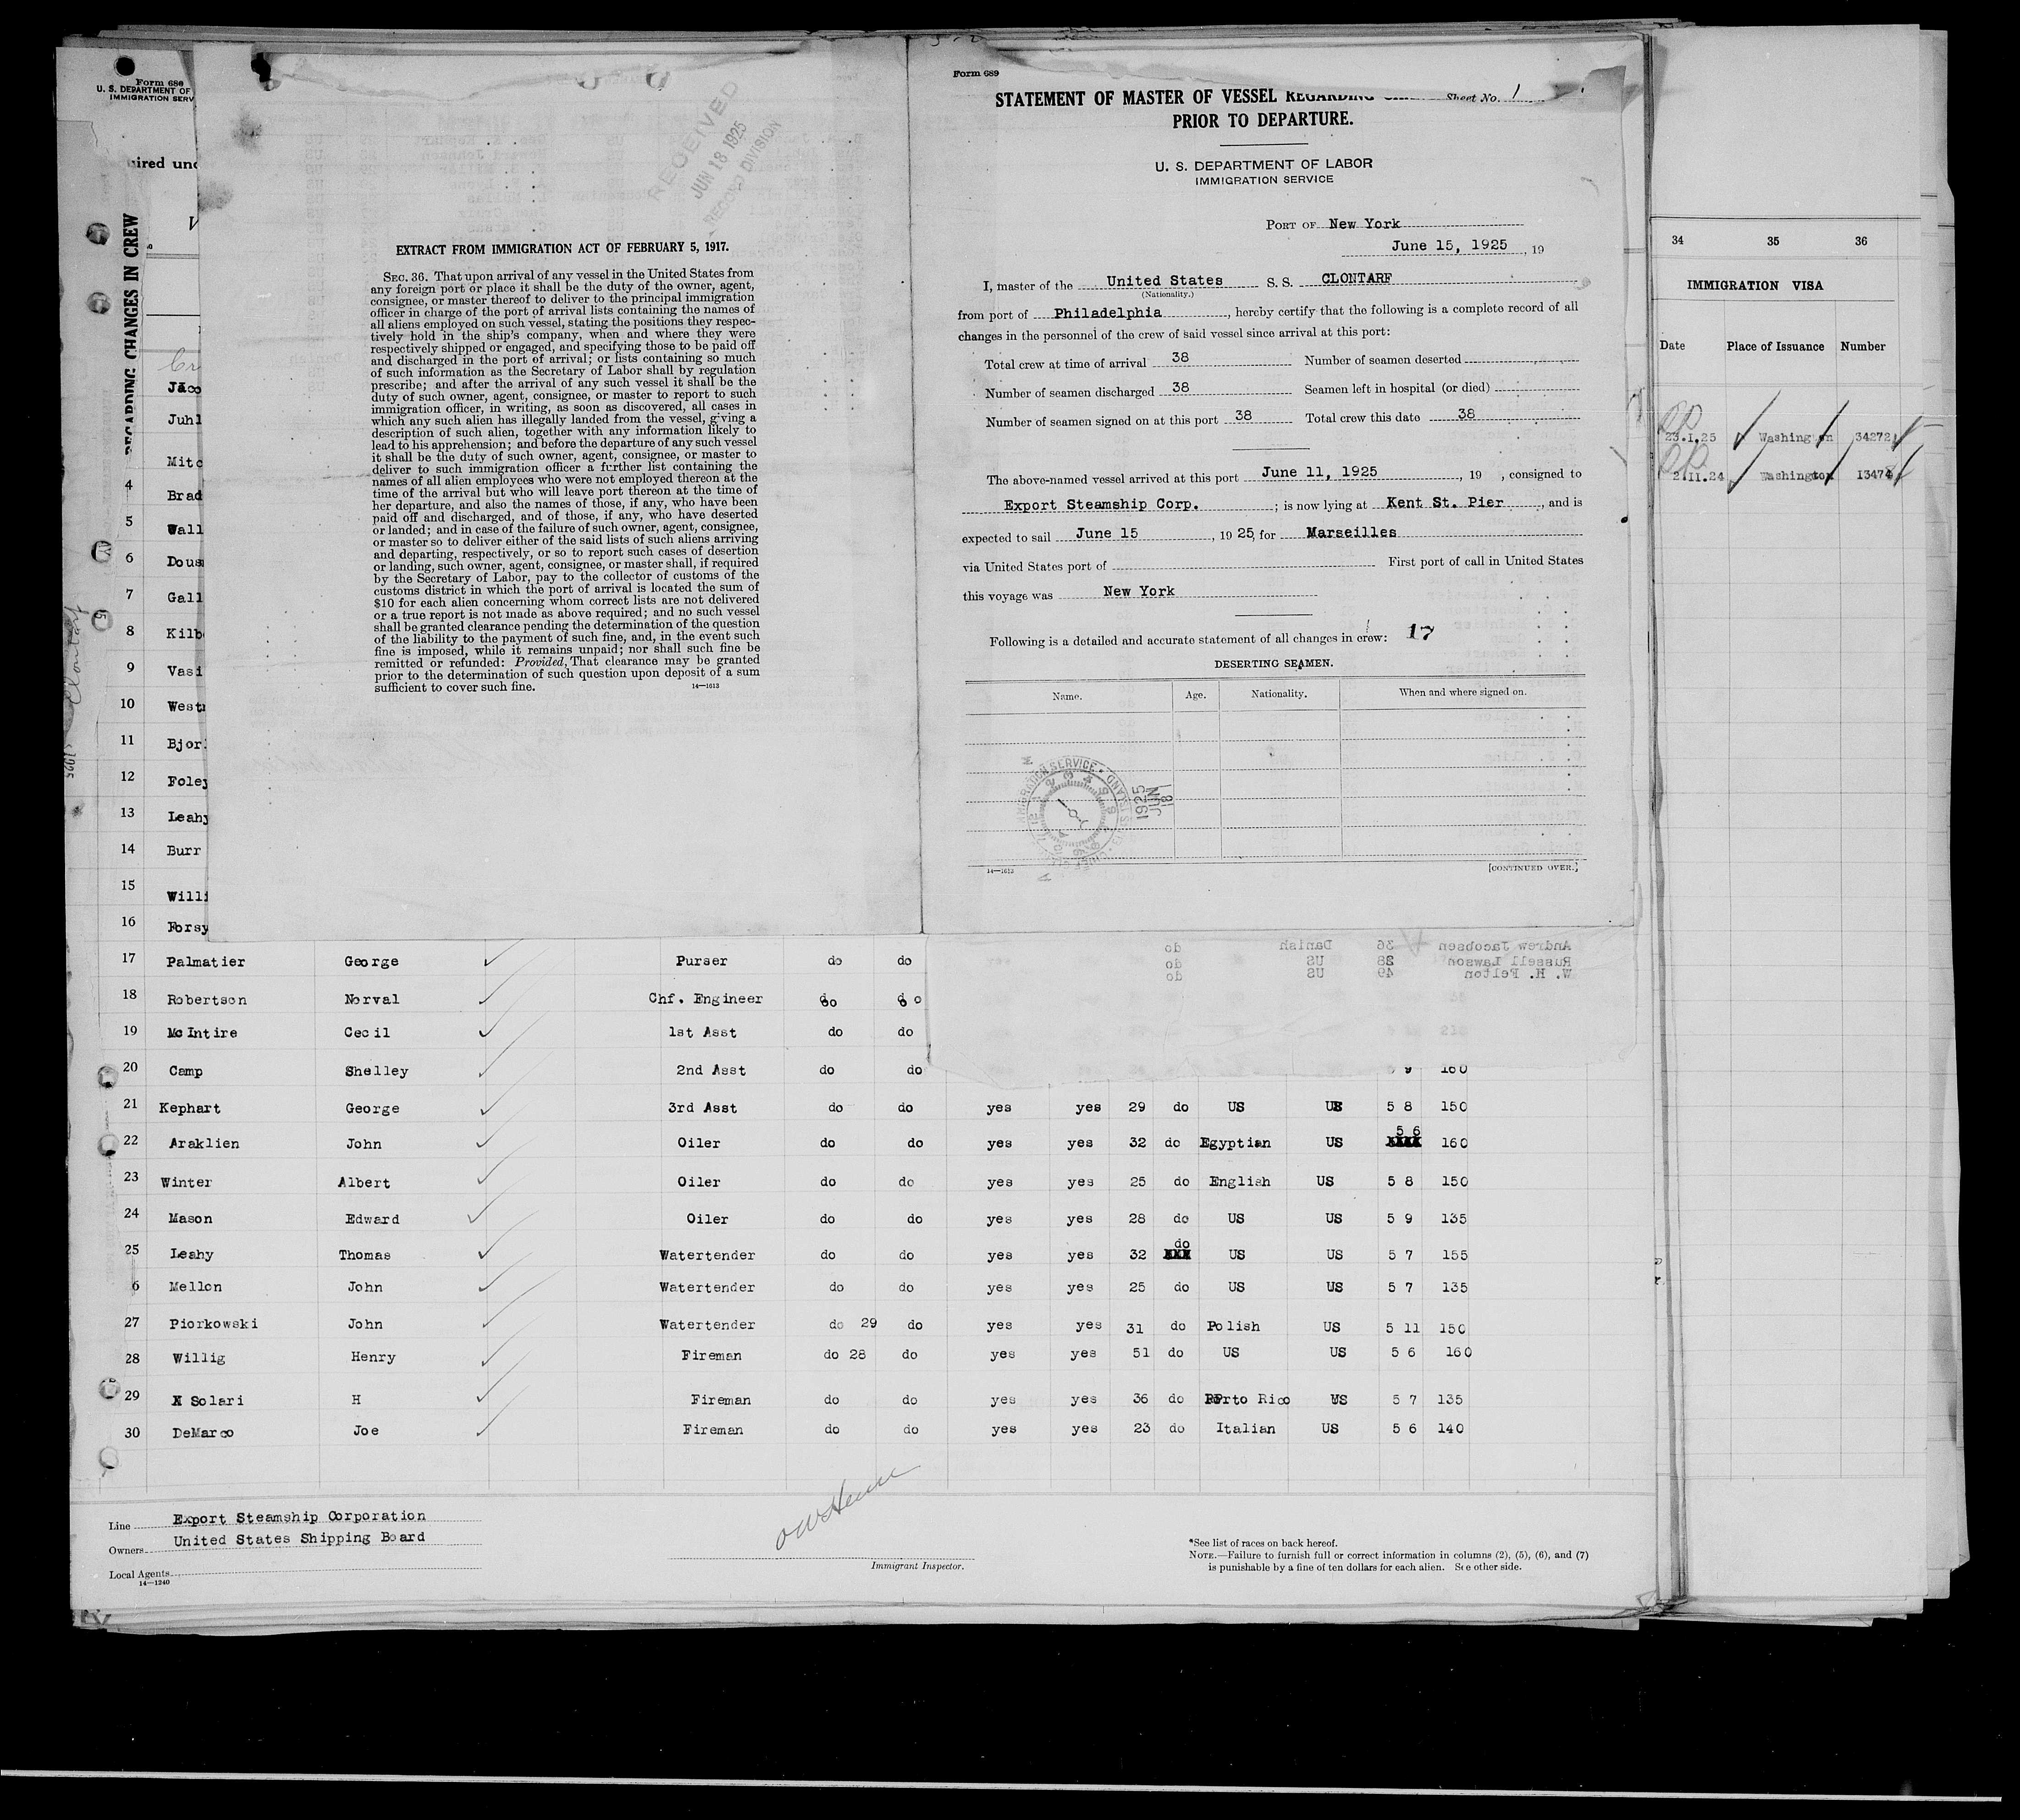 Form 686
U. S. DEPARTMENT OF
IMMIGRATION SERV
REGARDING CHANGES IN CREW
RECEIVED
JUN 18 1925
RECORD DIVISION
EXTRACT FROM IMMIGRATION ACT OF FEBRUARY 5, 1917.
SEC. 36. That upon arrival of any vessel in the United States from
any foreign port or place it shall be the duty of the owner, agent,
consignee, or master thereof to deliver to the principal immigration
officer in charge of the port of arrival lists containing the names of
all aliens employed on such vessel, stating the positions they respec-
tively hold in the ship's company, when and where they were
respectively shipped or engaged, and specifying those to be paid off
and discharged in the port of arrival; or lists containing so much
of such information as the Secretary of Labor shall by regulation
prescribe; and after the arrival of any such vessel it shall be the
duty of such owner, agent, consignee, or master to report to such
immigration officer, in writing, as soon as discovered, all cases in
which any such alien has illegally landed from the vessel, giving a
description of such alien, together with any information likely to
lead to his apprehension; and before the departure of any such vessel
it shall be the duty of such owner, agent, consignee, or master to
deliver to such immigration officer a further list containing the
names of all alien employees who were not employed thereon at the
time of the arrival but who will leave port thereon at the time of
her departure, and also the names of those, if any, who have been
paid off and discharged, and of those, if any, who have deserted
or landed; and in case of the failure of such owner, agent, consignee,
or master so to deliver either of the said lists of such aliens arriving
and departing, respectively, or so to report such cases of desertion
or landing, such owner, agent, consignee, or master shall, if required
by the Secretary of Labor, pay to the collector of customs of the
customs district in which the port of arrival is located the sum of
$10 for each alien concerning whom correct lists are not delivered
or a true report is not made as above required; and no such vessel
shall be granted clearance pending the determination of the question
of the liability to the payment of such fine, and, in the event such
fine is imposed, while it remains unpaid; nor shall such fine be
remitted or refunded: Provided, That clearance may be granted
prior to the determination of such question upon deposit of a sum
sufficient to cover such fine. 14—1613
Form 689
STATEMENT OF MASTER OF VESSEL REGARDING Sheet No. 1
PRIOR TO DEPARTURE.
U. S. DEPARTMENT OF LABOR
IMMIGRATION SERVICE
PORT OF New York
June 15, 1925, 19
I, master of the United States S. S. CLONTARF
(Nationality.)
from port of Philadelphia, hereby certify that the following is a complete record of all
changes in the personnel of the crew of said vessel since arrival at this port:
Total crew at time of arrival 38 Number of seamen deserted
Number of seamen discharged 38 Seamen left in hospital (or died)
Number of seamen signed on at this port 38 Total crew this date 38
The above-named vessel arrived at this port June 11, 1925, 19 , consigned to
Export Steamship Corp. ; is now lying at Kent St. Pier, and is
expected to sail June 15, 19 25, for Marseilles
via United States port of First port of call in United States
this voyage was New York
Following is a detailed and accurate statement of all changes in crew: 17
DESERTING SEAMEN.
Name. Age. Nationality. When and where signed on.
1925
JUN
18
14—1613 [CONTINUED OVER.]
34 35 36
IMMIGRATION VISA
Date Place of Issuance Number
23.I.25 Washington 34272
2.II.24 Washington 13474
Jaco
Juhl
Mitc
4 Brad
5 Wall
6 Dous
7 Gall
8 Kilb
9 Vasi
10 West
11 Bjor
12 Foley
13 Leahy
14 Burr
15 Willi
16 Forsy
Andrew Jacobsen 36 Danish do
Russell Lawson 28 US do
W. H. Felton 49 US do
17 Palmatier George Purser do do
18 Robertson Norval Chf. Engineer do do
19 McIntire Cecil 1st Asst do do
20 Camp Shelley 2nd Asst do do 9 160
21 Kephart George 3rd Asst do do yes yes 29 do US US 5 8 150
22 Araklien John Oiler do do yes yes 32 do Egyptian US 5 6 160
23 Winter Albert Oiler do do yes yes 25 do English US 5 8 150
24 Mason Edward Oiler do do yes yes 28 do US US 5 9 135
25 Leahy Thomas Watertender do do yes yes 32 do US US 5 7 155
6 Mellon John Watertender do do yes yes 25 do US US 5 7 135
27 Piorkowski John Watertender do 29 do yes yes 31 do Polish US 5 11 150
28 Willig Henry Fireman do 28 do yes yes 51 do US US 5 6 160
29 X Solari H Fireman do do yes yes 36 do Porto Rico US 5 7 135
30 DeMarco Joe Fireman do do yes yes 23 do Italian US 5 6 140
Line Export Steamship Corporation
Owners United States Shipping Board
Local Agents
14—1240
Immigrant Inspector.
*See list of races on back hereof.
NOTE.—Failure to furnish full or correct information in columns (2), (5), (6), and (7)
is punishable by a fine of ten dollars for each alien. See other side.